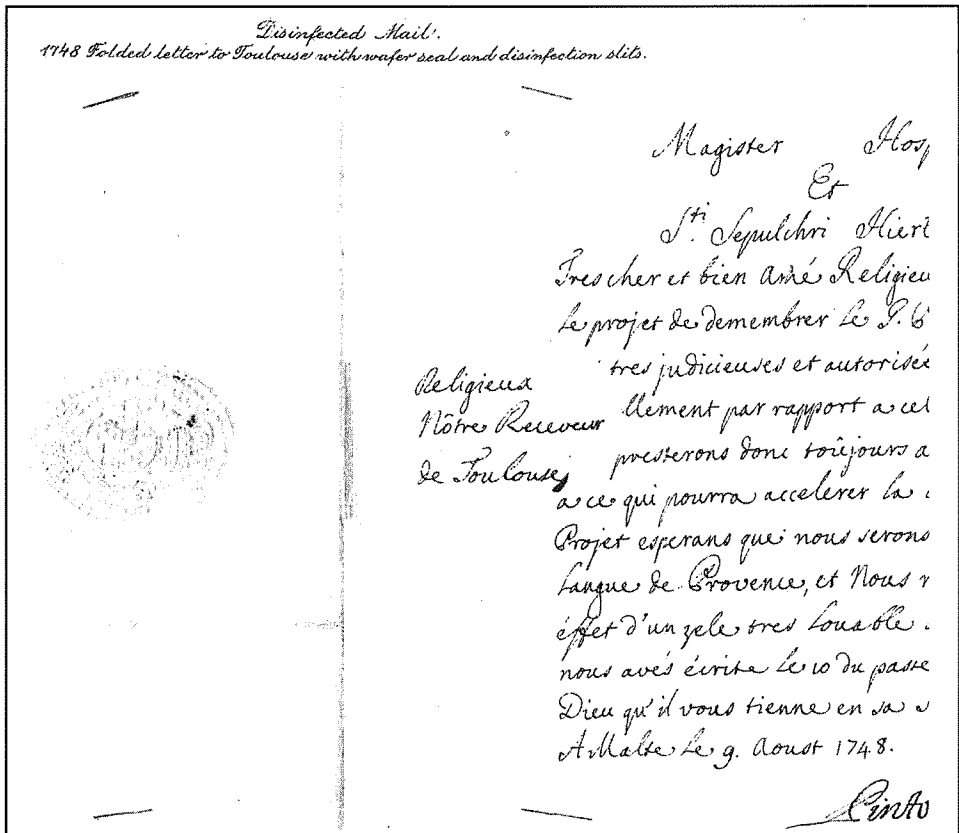 Disinfected Mail.
1748 Folded letter to Toulouse with wafer seal and disinfection slits.
Religieux
Nôtre Receveur
de Toulouse,
Magister Hosp
Et
S.ti Sepulchri Hier
Trescher et bien Amé Religieu
Le projet de demembrer Le P.
tres judicieuses et autorisée
llement par rapport a cel
presterons donc toûjours a
a ce qui pourra accelerer La
Projet esperans que nous serons
Langue de Provence, et Nous
éffet d'un zele tres Louable
nous avés écrite Le 10 du passe
Dieu qu'il vous tienne en sa s
A Malte Le 9. Aoust 1748.
Pinto